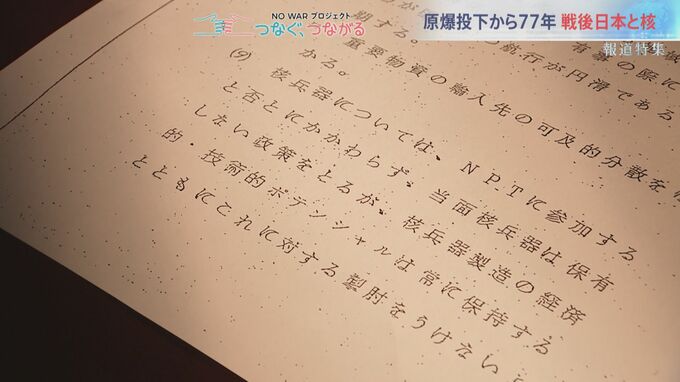 NO WAR プロジェクト
つなぐ、つながる
原爆投下から77年 戦後日本と核
報道特集
有事の際に
期する。
の航行が円滑である
重要物資の輸入先の可及的分散を
かる。
(9)
核兵器については、NPTに参加する
と否とにかかわらず、当面核兵器は保有
しない政策をとるが、核兵器製造の経済
的・技術的ポテンシャルは常に保持する
とともにこれに対する掣肘をうけない